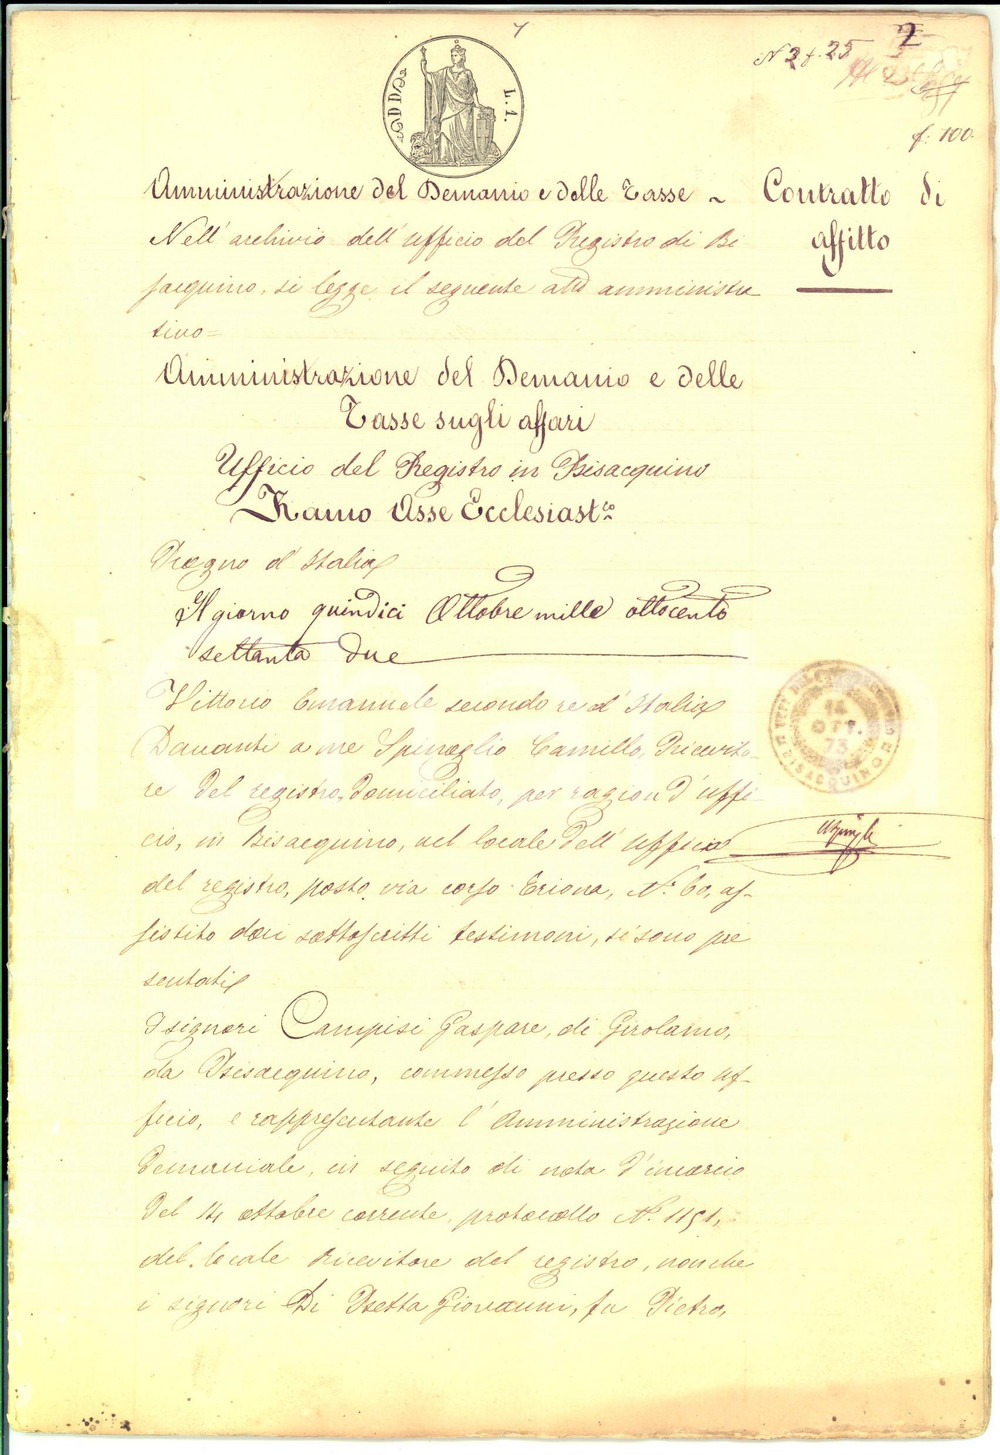 N 2 f. 25
2
f. 100
L. 1.
Amministrazione del Demanio e delle Tasse ~
Contratto di
affitto
Nell' archivio dell' ufficio del Registro di Bi
sacquino, si legge il seguente atto amministra
tivo =
Amministrazione del Demanio e delle
Tasse sugli affari
Ufficio del Registro in Bisacquino
Ramo Asse Ecclesiast.co
Regno d' Italia
Il giorno quindici Ottobre mille ottocento
settanta due
Vittorio Emanuele secondo re d' Italia
Davanti a me Spinoglio Camillo, Ricevito-
re del registro, domiciliato, per ragion d' uffi-
cio, in Bisacquino, nel locale dell' ufficio
del registro, posto via corso Triona, N.º 60, as-
sistito dai sottoscritti testimoni, si sono pre
sentati
I signori Campisi Gaspare, di Girolamo,
da Bisacquino, commesso presso questo uf-
ficio, e rappresentante l' Amministrazione
demaniale, in seguito di nota d' incarico
del 14 ottobre corrente, protocollo N.º 1151,
del locale Ricevitore del registro, nonche
i signori Di Betta Giovanni, fu Pietro,
14
OTT.
73
BISACQUINO